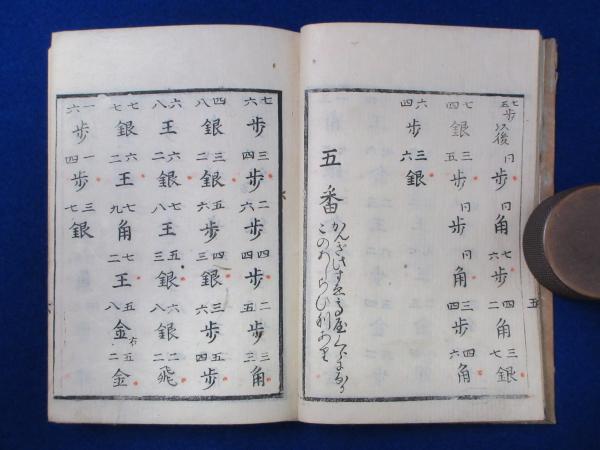 七五歩以後 同歩 同角 七六歩 四二角 三七銀
七四銀 三五歩 同歩 同角 三四歩 四六角
六四歩 三六銀
五番
五
七六歩 三四歩 二六歩 四四歩 二五歩 三三角
四八銀 三二銀 五六歩 四三銀 三六歩 五四歩
六八王 六二銀 七八王 五三銀 六八銀 二飛
七七銀 六二王 七九角 七二王 五八金右 五二金
一六歩 一四歩 三七銀
六